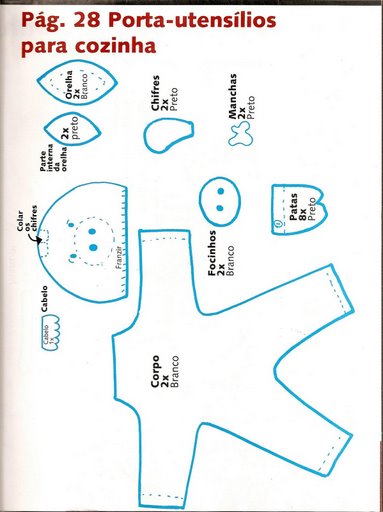 Pág. 28 Porta-utensílios
para cozinha
Orelha
2x
Branco
2x
preto
Parte
interna
da
orelha
Chifres
2x
Preto
Manchas
2x
Preto
Colar
os
chifres
Franzir
Focinhos
2x
Branco
Patas
8x
Preto
Cabelo
Cabelo
1x
Corpo
2x
Branco